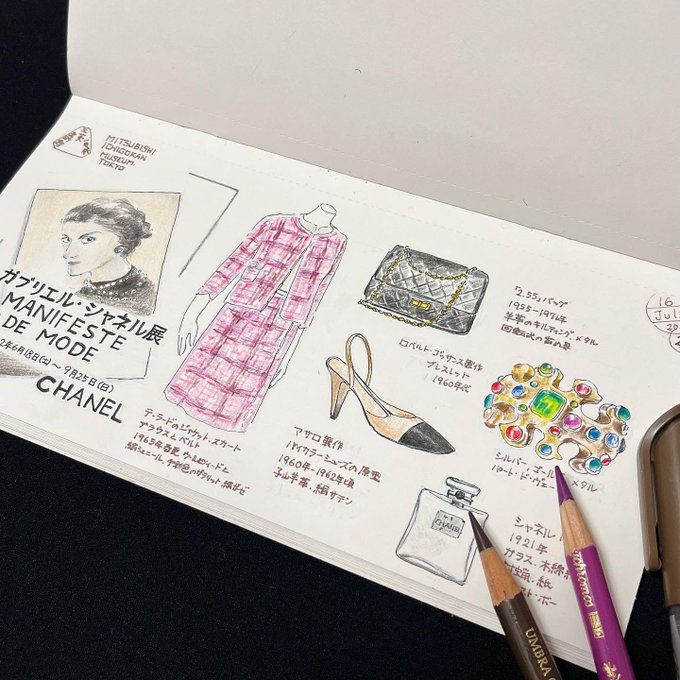 三菱一号館美術館
MITSUBISHI
ICHIGOKAN
MUSEUM.
TOKYO
ガブリエル・シャネル展
MANIFESTE
DE MODE
2年6月18日(土)〜9月25日(日)
CHANEL
テーラードのジャケット、スカート
ブラウスとベルト
1965年春夏
マサロ製作
バイカラーシューズの原型
1960年-1962年頃
子山羊革・絹サテン
「2.55」バッグ
1955-1971年
羊革のキルティング メタル
回転式の留め具
ロベルト・ゴッサンス製作
ブレスレット
1960年代
シルバー ゴール メタル
パート・ド・ヴェー
CHANEL
シャネル
1921年
ガラス、木綿糸
封蝋、紙
16
Jul
20
UMBRA
ychromos